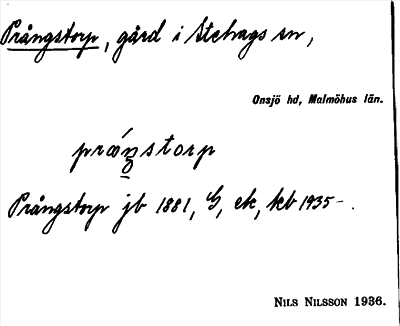 Prångstorp, gård i Stehags sn,
Onsjö hd, Malmöhus län.
prånstorp
Prångstorp jb 1881, G, ek, kb 1935-.
NILS NILSSON 1936.